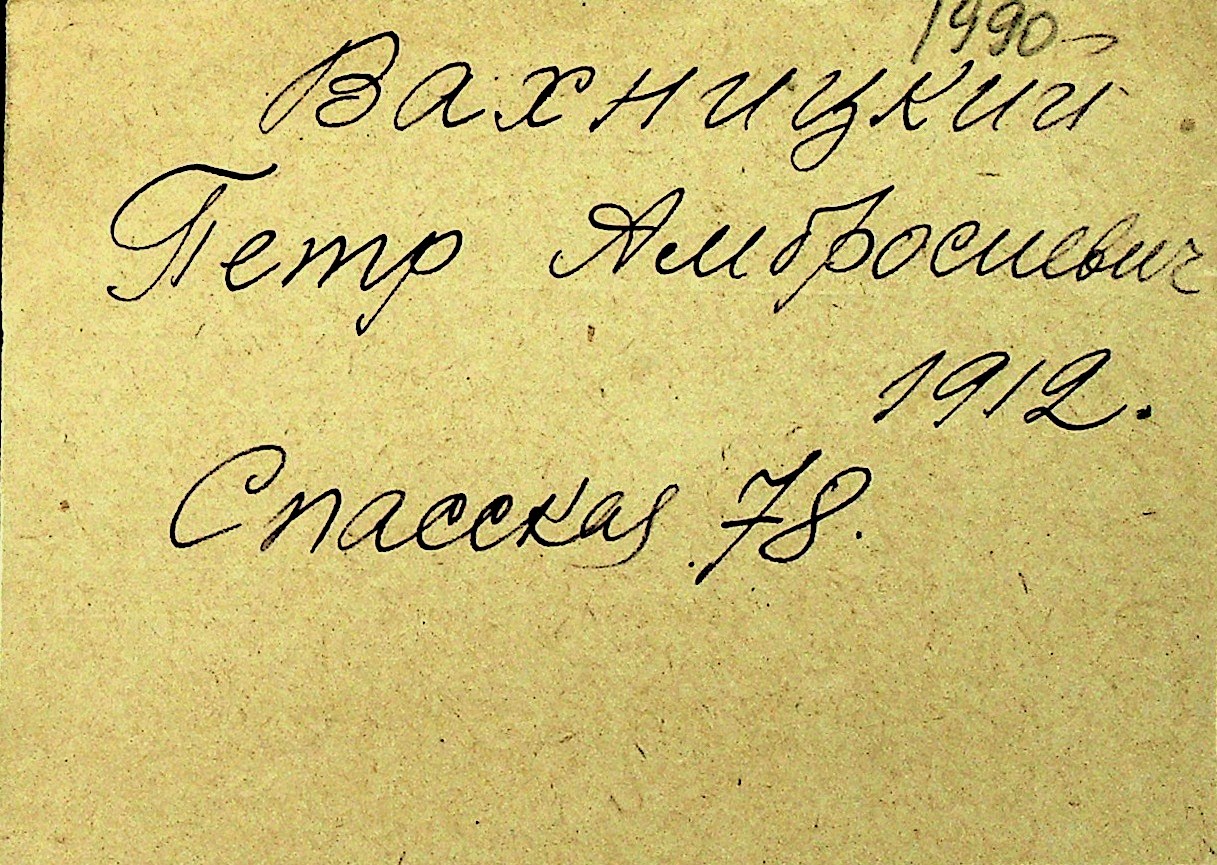 1990
Вахницкий
Петр Амбросиевич
1912.
Спасская 78.